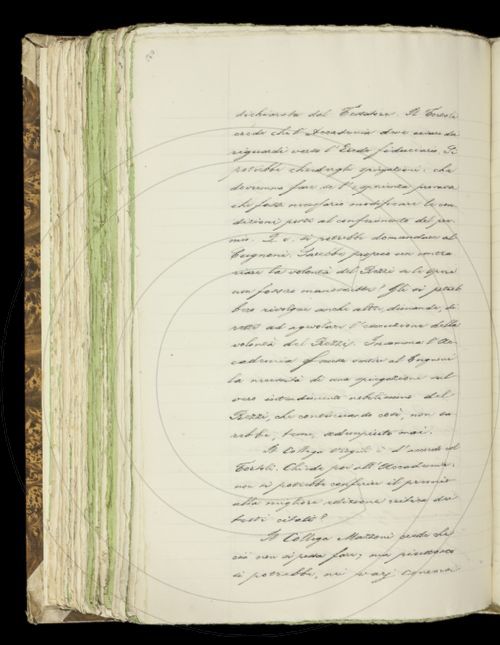 dichiarata dal Testatore. Il Tortoli
crede che l'Accademia deve usare dei
riguardi verso l'Erede fiduciario. Si
potrebbe chiedergli spiegazioni: che
dovremmo fare se l'esperienza provasse
che fosse necessario modificare le con-
dizioni poste al conferimento del pre-
mio. Q. s. si potrebbe domandare al
Cugnoni. Sarebbe proprio un contra
riare la volontà del Rezzi se le Opere
non fossero manoscritte? Gli si potreb
bero rivolgere anche altre domande, di
rette ad agevolare l'esecuzione della
volontà del Rezzi. Insomma l'Ac-
cademia faccia sentire al Cugnoni
la necessità di una spiegazione sul
vero intendimento nobilissimo del
Rezzi, che continuando così, non sa
rebbe, teme, adempiuto mai.
Il Collega Vergili è d'accordo col
Tortoli. Chiede poi all'Accademia:
non si potrebbe conferire il premio
alla migliore edizione critica dei
testi citati?
Il Collega Mazzoni crede che
ciò non si possa fare; ma piuttosto
si potrebbe, nei